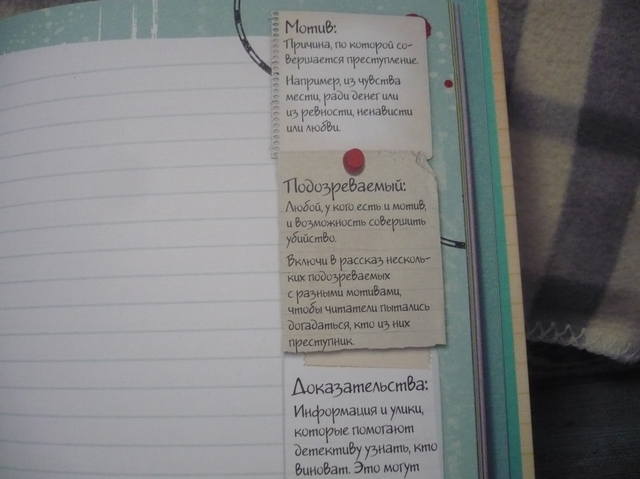 Мотив:
Причина, по которой со-
вершается преступление.
Например, из чувства
мести, ради денег или
из ревности, ненависти
или любви.
Подозреваемый:
Любой, у кого есть и мотив,
и возможность совершить
убийство.
Включи в рассказ несколь-
ких подозреваемых
с разными мотивами,
чтобы читатели пытались
догадаться, кто из них
преступник.
Доказательства:
Информация и улики,
которые помогают
детективу узнать, кто
виноват. Это могут